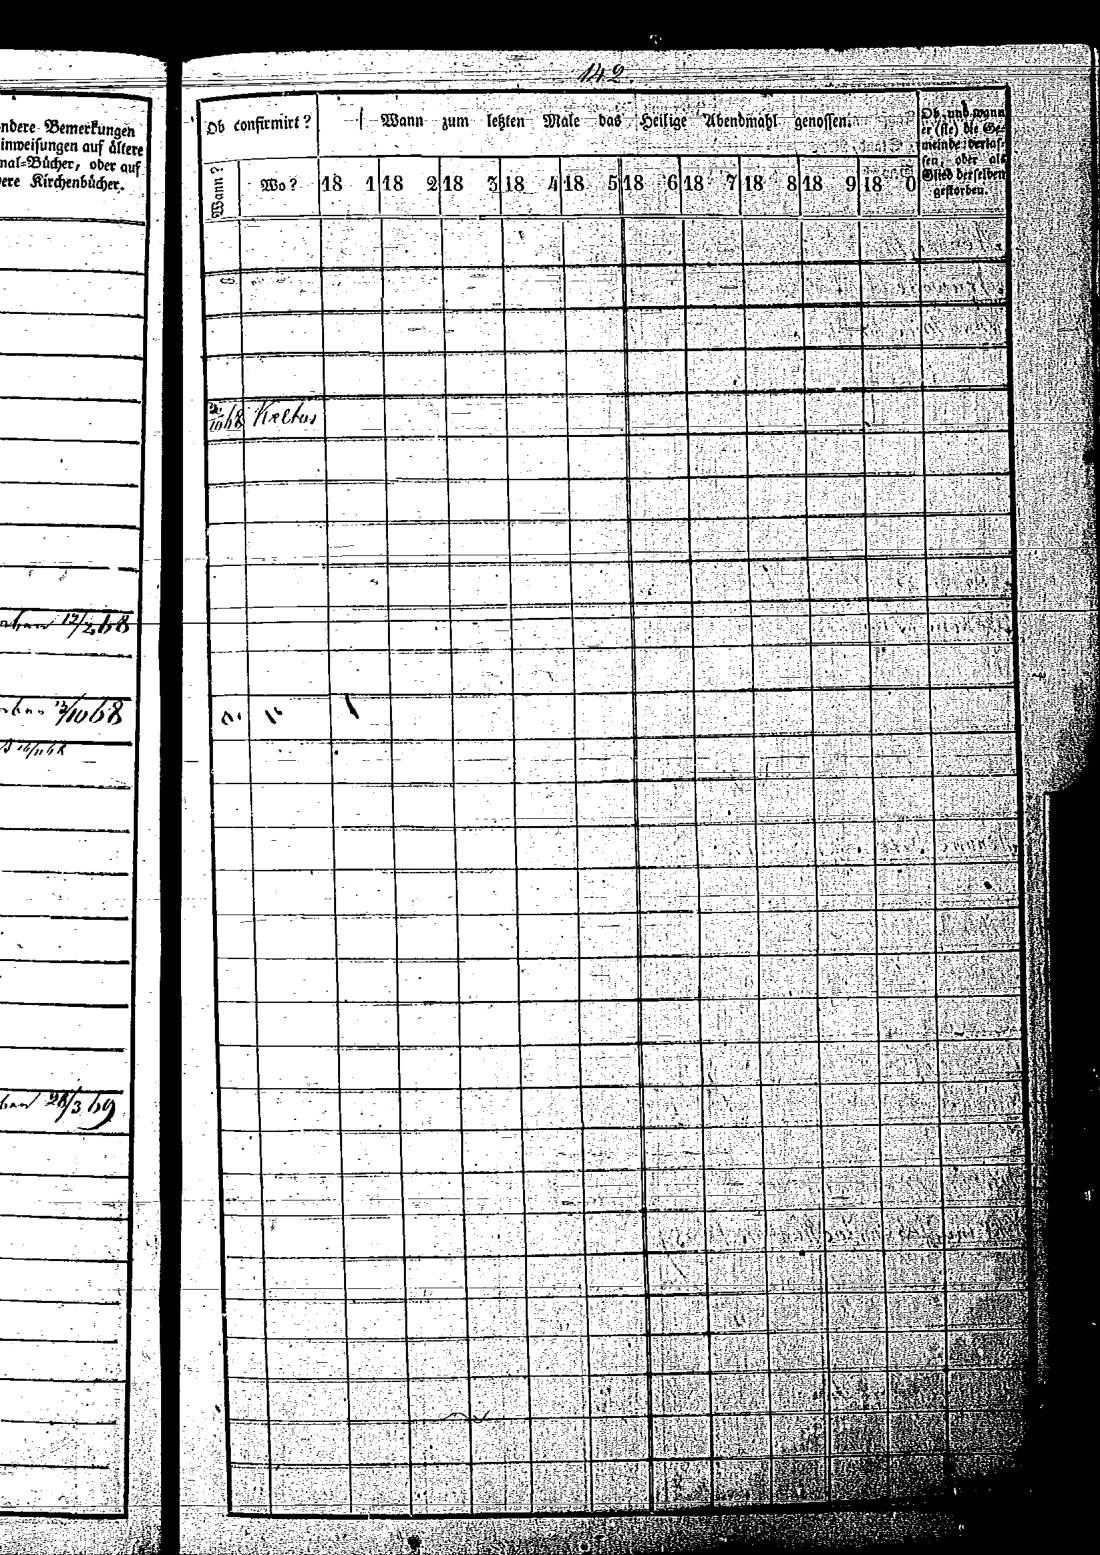 142.
ndere Bemerkungen
inweisungen auf ältere
nal-Bücher, oder auf
ere Kirchenbücher.
Ob confirmirt?
Wann zum letzten Male das Heilige Abendmahl genossen.
Ob und wann
er (sie) die Ge-
meinde verlas-
sen, oder als
Glied derselben
gestorben.
Wann?
Wo?
18 1 18 2 18 3 18 4 18 5 18 6 18 7 18 8 18 9 18 0
1068 Keltus
12/2 68
12/10 68
16/11 68
28/3 69